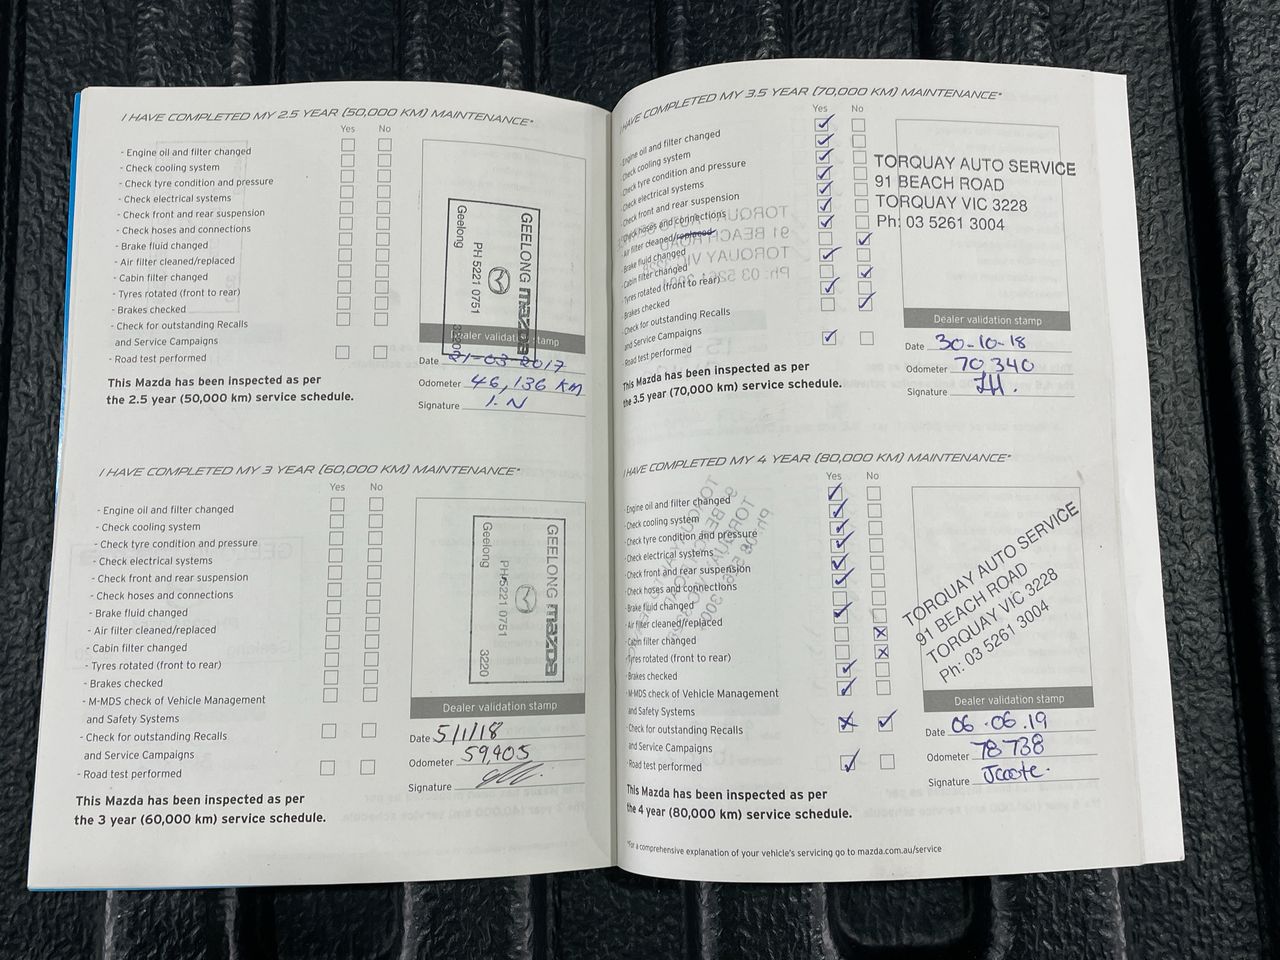 I HAVE COMPLETED MY 2.5 YEAR (50,000 KM) MAINTENANCE*
Yes No
- Engine oil and filter changed
- Check cooling system
- Check tyre condition and pressure
- Check electrical systems
- Check front and rear suspension
- Check hoses and connections
- Brake fluid changed
- Air filter cleaned/replaced
- Cabin filter changed
- Tyres rotated (front to rear)
- Brakes checked
- Check for outstanding Recalls
and Service Campaigns
- Road test performed
This Mazda has been inspected as per
the 2.5 year (50,000 km) service schedule.
GEELONG mazda
PH 5221 0751
Geelong 3220
Dealer validation stamp
Date 21-03-2017
Odometer 46,136 KM
Signature I.N
I HAVE COMPLETED MY 3 YEAR (60,000 KM) MAINTENANCE*
Yes No
- Engine oil and filter changed
- Check cooling system
- Check tyre condition and pressure
- Check electrical systems
- Check front and rear suspension
- Check hoses and connections
- Brake fluid changed
- Air filter cleaned/replaced
- Cabin filter changed
- Tyres rotated (front to rear)
- Brakes checked
- M-MDS check of Vehicle Management
and Safety Systems
- Check for outstanding Recalls
and Service Campaigns
- Road test performed
This Mazda has been inspected as per
the 3 year (60,000 km) service schedule.
GEELONG mazda
PH 5221 0751
Geelong 3220
Dealer validation stamp
Date 5/1/18
Odometer 59,405
Signature
I HAVE COMPLETED MY 3.5 YEAR (70,000 KM) MAINTENANCE*
Yes No
- Engine oil and filter changed
- Check cooling system
- Check tyre condition and pressure
- Check electrical systems
- Check front and rear suspension
- Check hoses and connections
- Air filter cleaned/replaced
- Brake fluid changed
- Cabin filter changed
- Tyres rotated (front to rear)
- Brakes checked
- Check for outstanding Recalls
and Service Campaigns
- Road test performed
This Mazda has been inspected as per
the 3.5 year (70,000 km) service schedule.
TORQUAY AUTO SERVICE
91 BEACH ROAD
TORQUAY VIC 3228
Ph: 03 5261 3004
Dealer validation stamp
Date 30-10-18
Odometer 70 340
Signature
I HAVE COMPLETED MY 4 YEAR (80,000 KM) MAINTENANCE*
Yes No
- Engine oil and filter changed
- Check cooling system
- Check tyre condition and pressure
- Check electrical systems
- Check front and rear suspension
- Check hoses and connections
- Brake fluid changed
- Air filter cleaned/replaced
- Cabin filter changed
- Tyres rotated (front to rear)
- Brakes checked
- M-MDS check of Vehicle Management
and Safety Systems
- Check for outstanding Recalls
and Service Campaigns
- Road test performed
This Mazda has been inspected as per
the 4 year (80,000 km) service schedule.
TORQUAY AUTO SERVICE
91 BEACH ROAD
TORQUAY VIC 3228
Ph: 03 5261 3004
Dealer validation stamp
Date 06.06.19
Odometer 78 738
Signature Jcoote.
*For a comprehensive explanation of your vehicle's servicing go to mazda.com.au/service